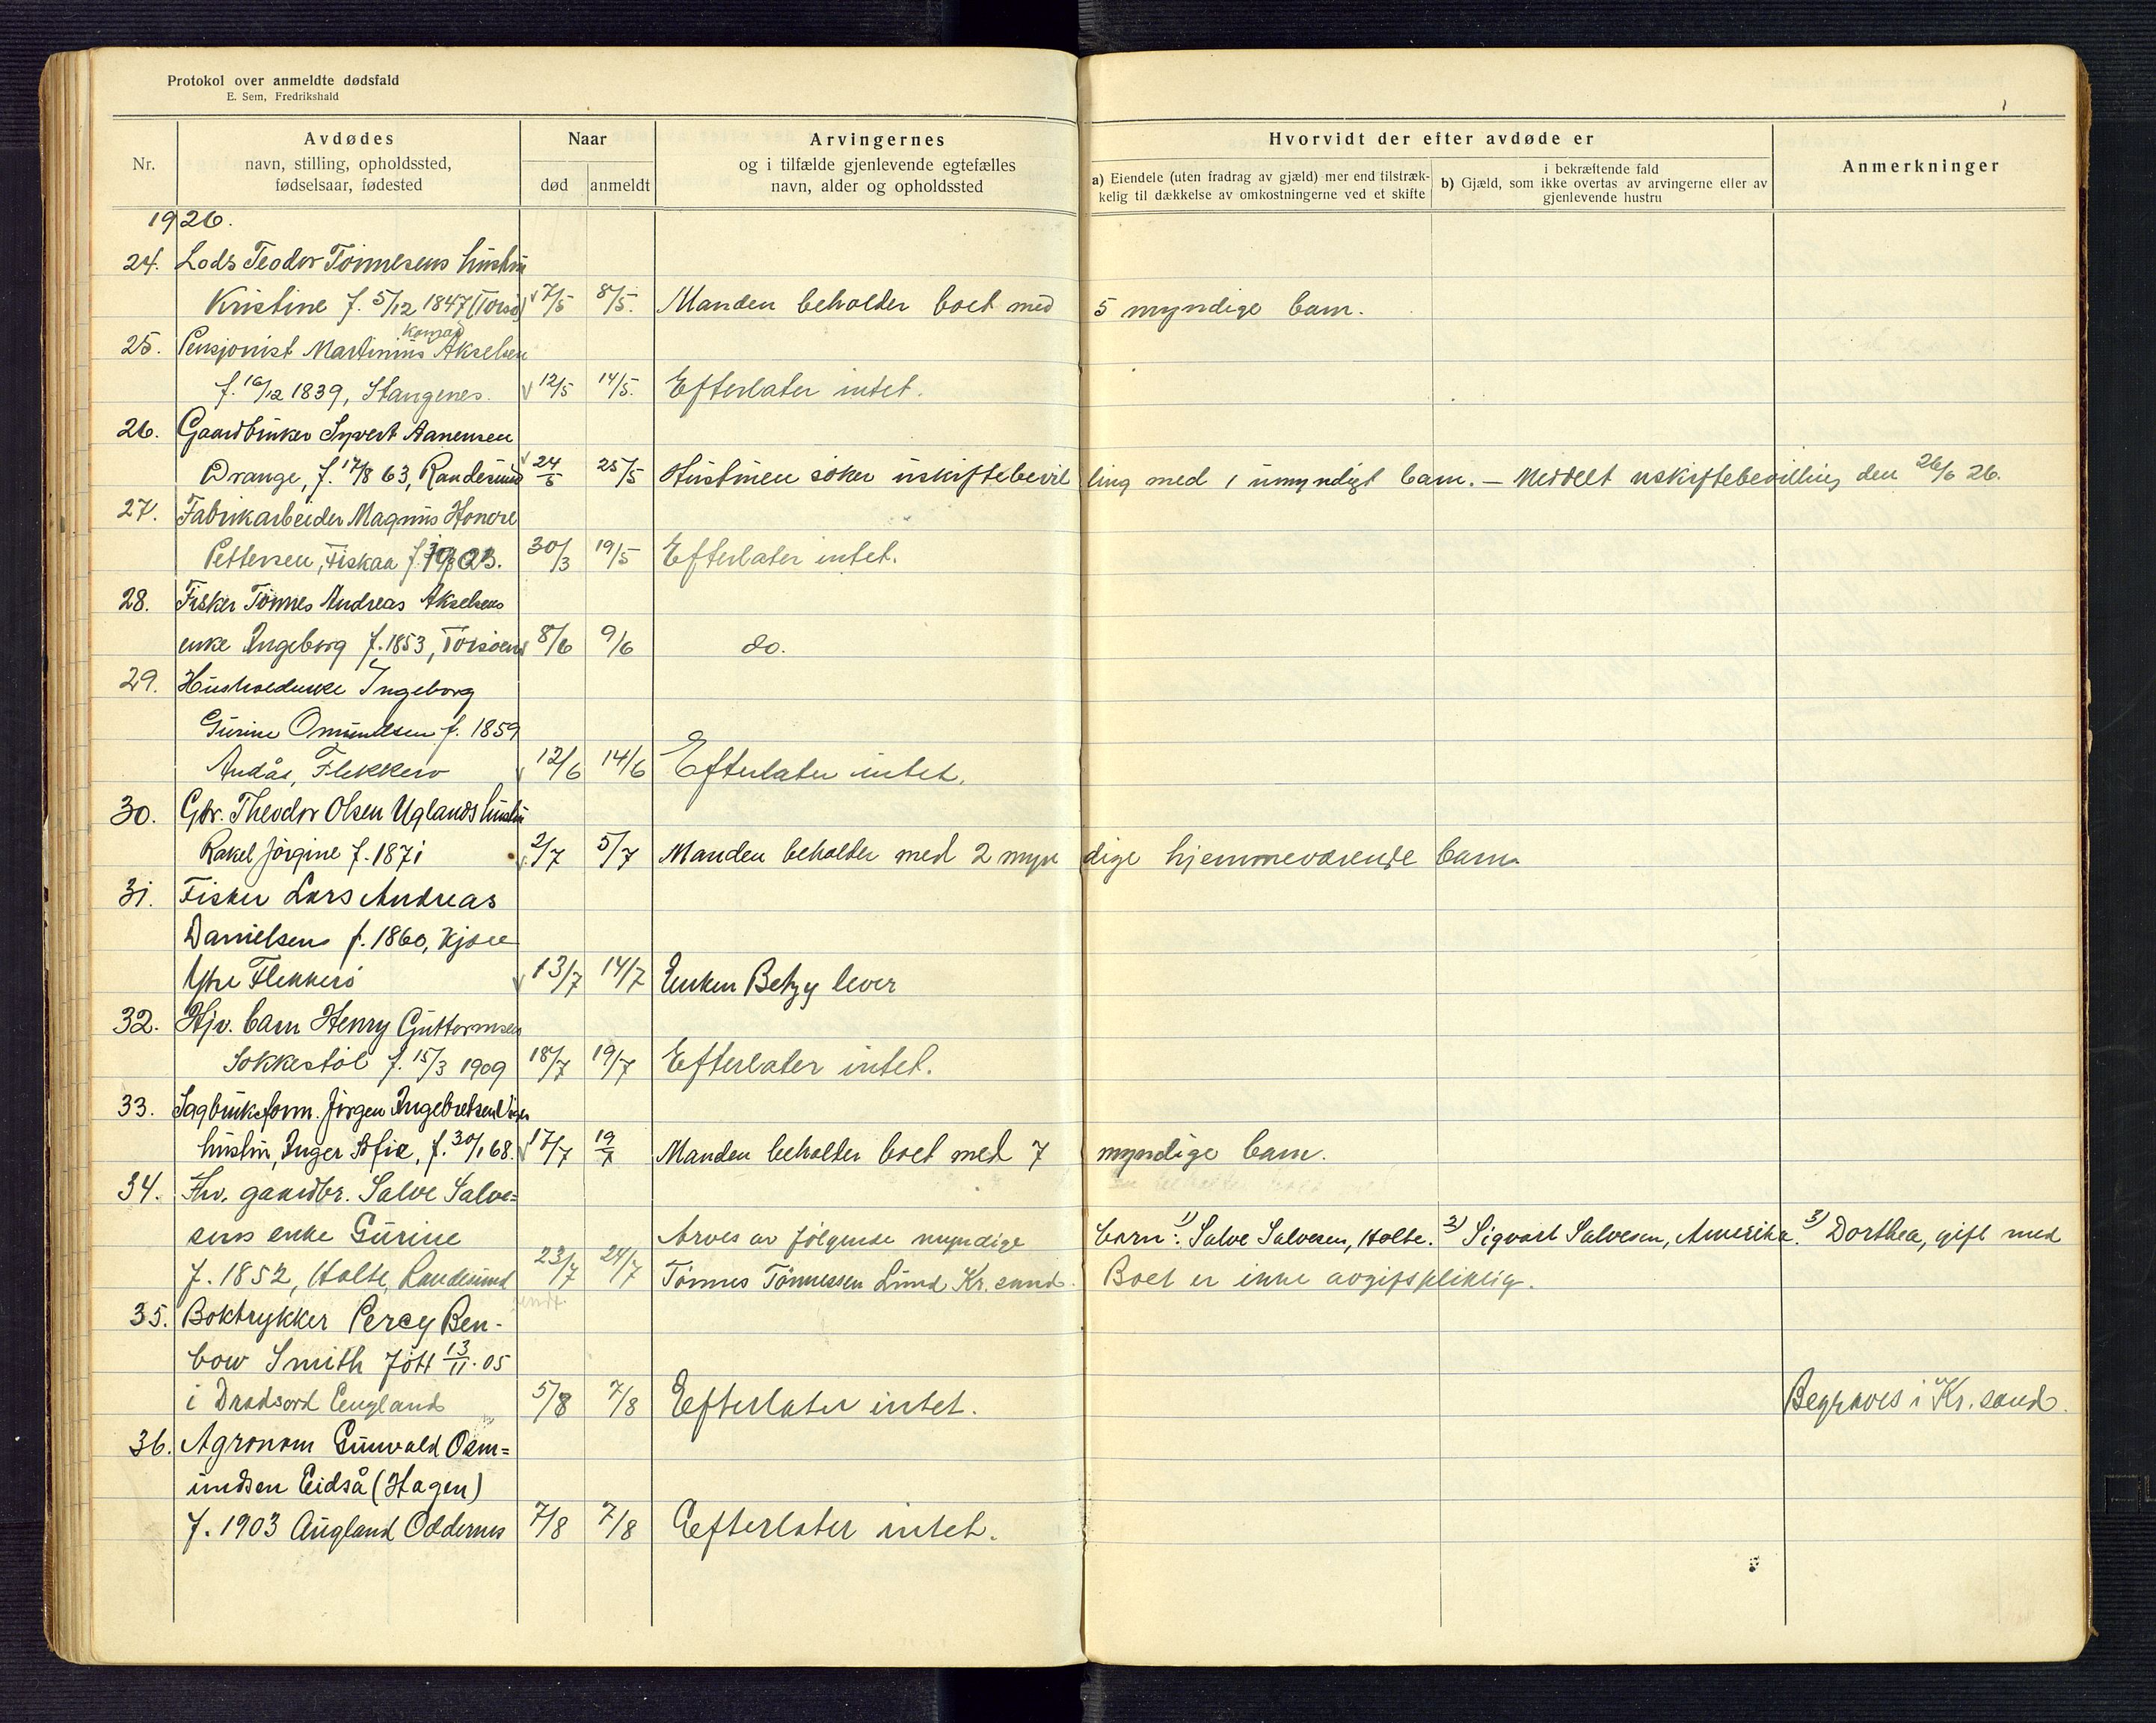 Protokol over anmeldte dødsfald
E. Sem, Fredrikshald
Nr.
Avdødes
navn, stilling, opholdssted,
fødselsaar, fødested
Naar
død
anmeldt
Arvingernes
og i tilfælde gjenlevende egtefælles
navn, alder og opholdssted
Hvorvidt der efter avdøde er
a) Eiendele (uten fradrag av gjæld) mer end tilstræk-
kelig til dækkelse av omkostningerne ved et skifte
i bekræftende fald
b) Gjæld, som ikke overtas av arvingerne eller av
gjenlevende hustru
Anmerkninger
1926.
24. Lods Teodor Tönnesens hustru
Kristine f. 5/12 1847 (Torsö) 7/5 8/5. Manden beholder boet med 5 myndige barn.
Konrad
25. Pensjonist Martinius Akselsen
f. 16/12 1839, Stangenes. 12/5 14/5. Efterlater intet.
26. Gaardbruker Syvert Aanensen
Drange, f. 17/8 63, Randesund 24/5 25/5 Hustruen söker uskiftebevilling med 1 umyndigt barn. — Meddelt uskiftebevilling den 26/6 26.
27. Fabrikarbeider Magnus Honore
Pettersen, Fiskaa f. 30/3 19/5 Efterlater intet.
28. Fisker Tönnes Andreas Akselsens
enke Ingeborg f. 1853, 8/6 9/6 do.
29. Ingeborg
Gurine Omundsen f. 1859
Andås, Flekkerö 12/6 14/6 Efterlater intet.
30. Gbr. Theodor Olsen Uglands hustru
Rakel Jörgine f. 1871 2/7 5/7 Manden beholder med 2 myndige hjemmeværende barn
31. Fisker Lars Andreas
Danielsen f. 1860, Kjöre
Ytre Flekkerö 13/7 14/7 Enken Betzy lever
32. Hjv. barn Henry Guttormsen
Sokkestöl f. 15/3 1909 18/7 19/7 Efterlater intet.
33. Sagbruksform. Jörgen Ingebretsen
hustru, Inger Sofie, f. 30/1 68. 17/7 19/7 Manden beholder boet med 7 myndige barn.
34. Fhv. gaardbr. Salve Salve=
sens enke Gurine
Arves av fölgende myndige barn: 1) Salve Salvesen, Holte. 2) Sigvart Salvesen, Amerika. 3) Dorthea, gift med
f. 1852, Holte, Randesund 23/7 24/7 Tönnes Tönnessen Lund Kr. sand. Boet er ikke avgiftspliktig.
35. Boktrykker Percy Ben-
bow Smith född 13/11.05
i England 5/8 7/8 Eefterlater intet. Begraves i Kr. sand.
36. Agronom Gunvald Osm=
undsen Eidså (Hagen)
f. 1903 Augland Oddernes 7/8 7/8 Eefterlater intet.